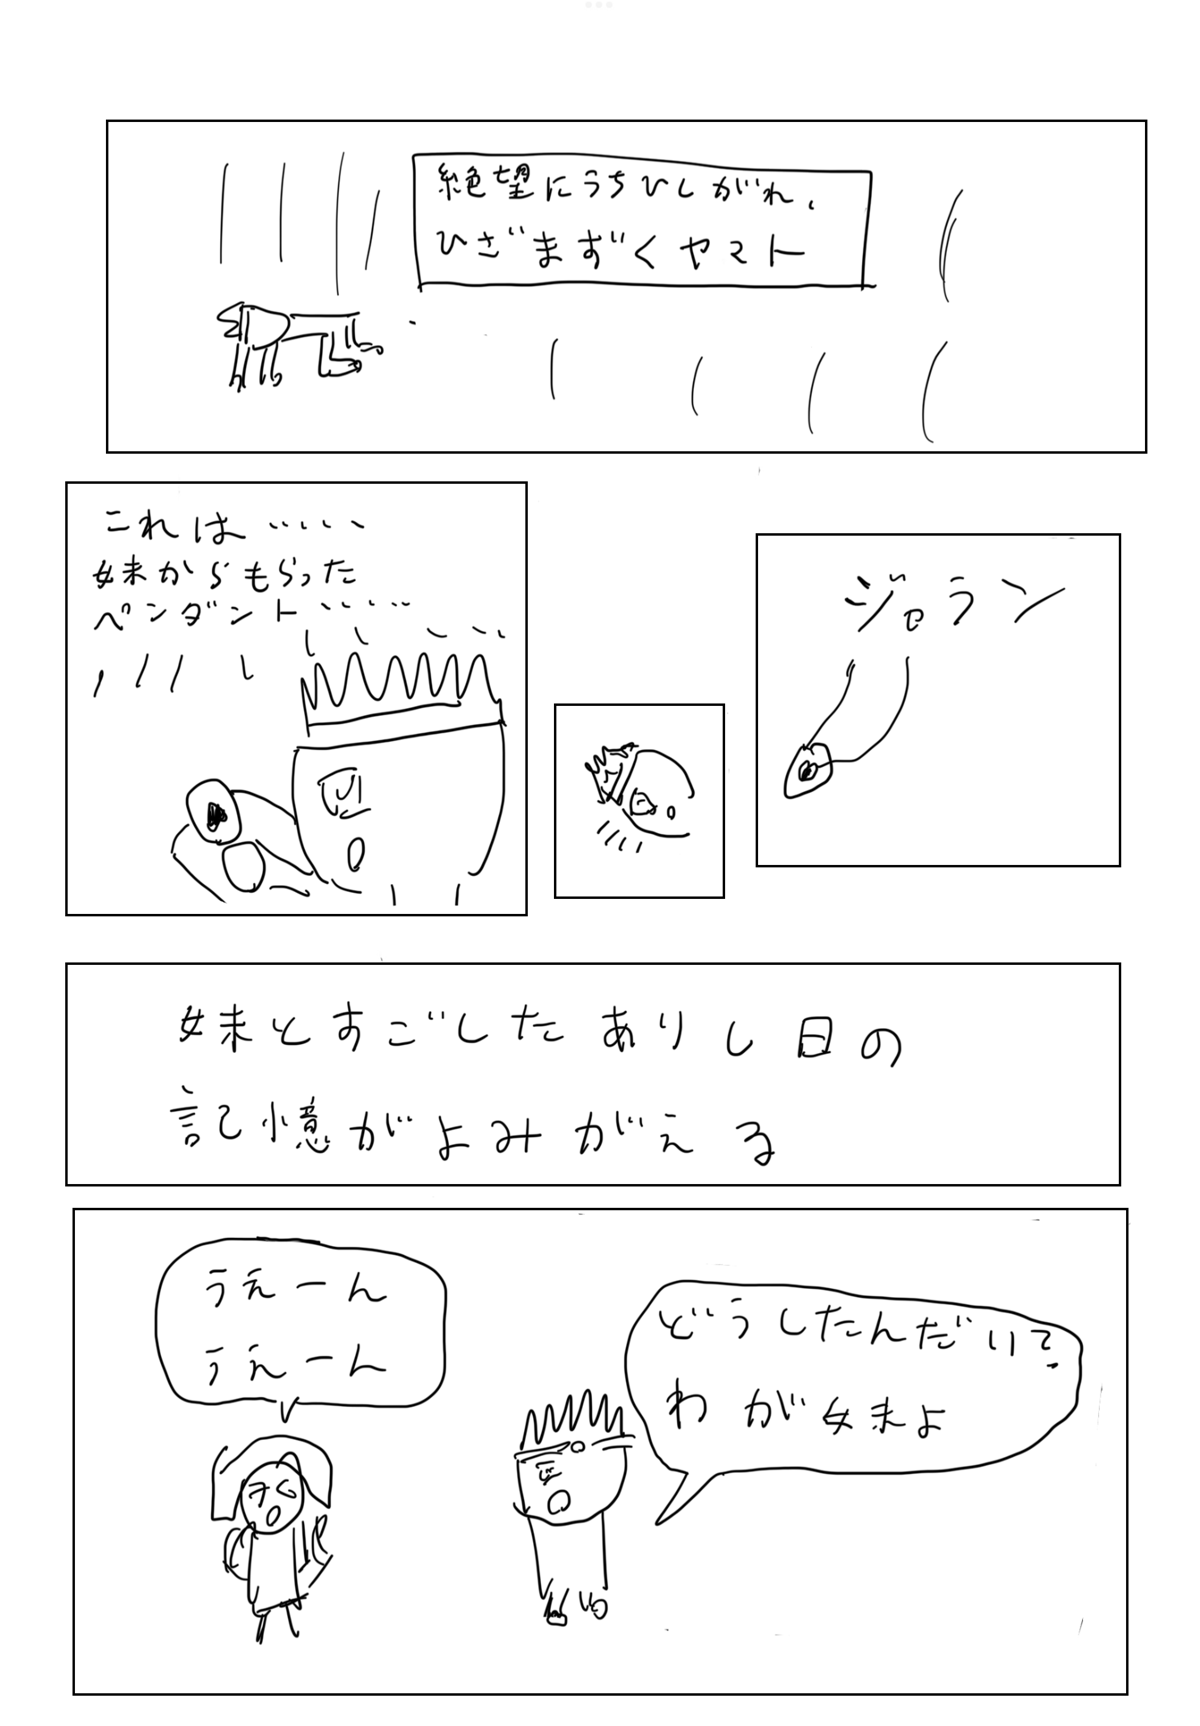 絶望にうちひしがれ、
ひざまずくヤマト
ジャラン
これは……
妹からもらった
ペンダント……
妹とすごしたありし日の
記憶がよみがえる
どうしたんだい?
わが妹よ
うえーん
うえーん